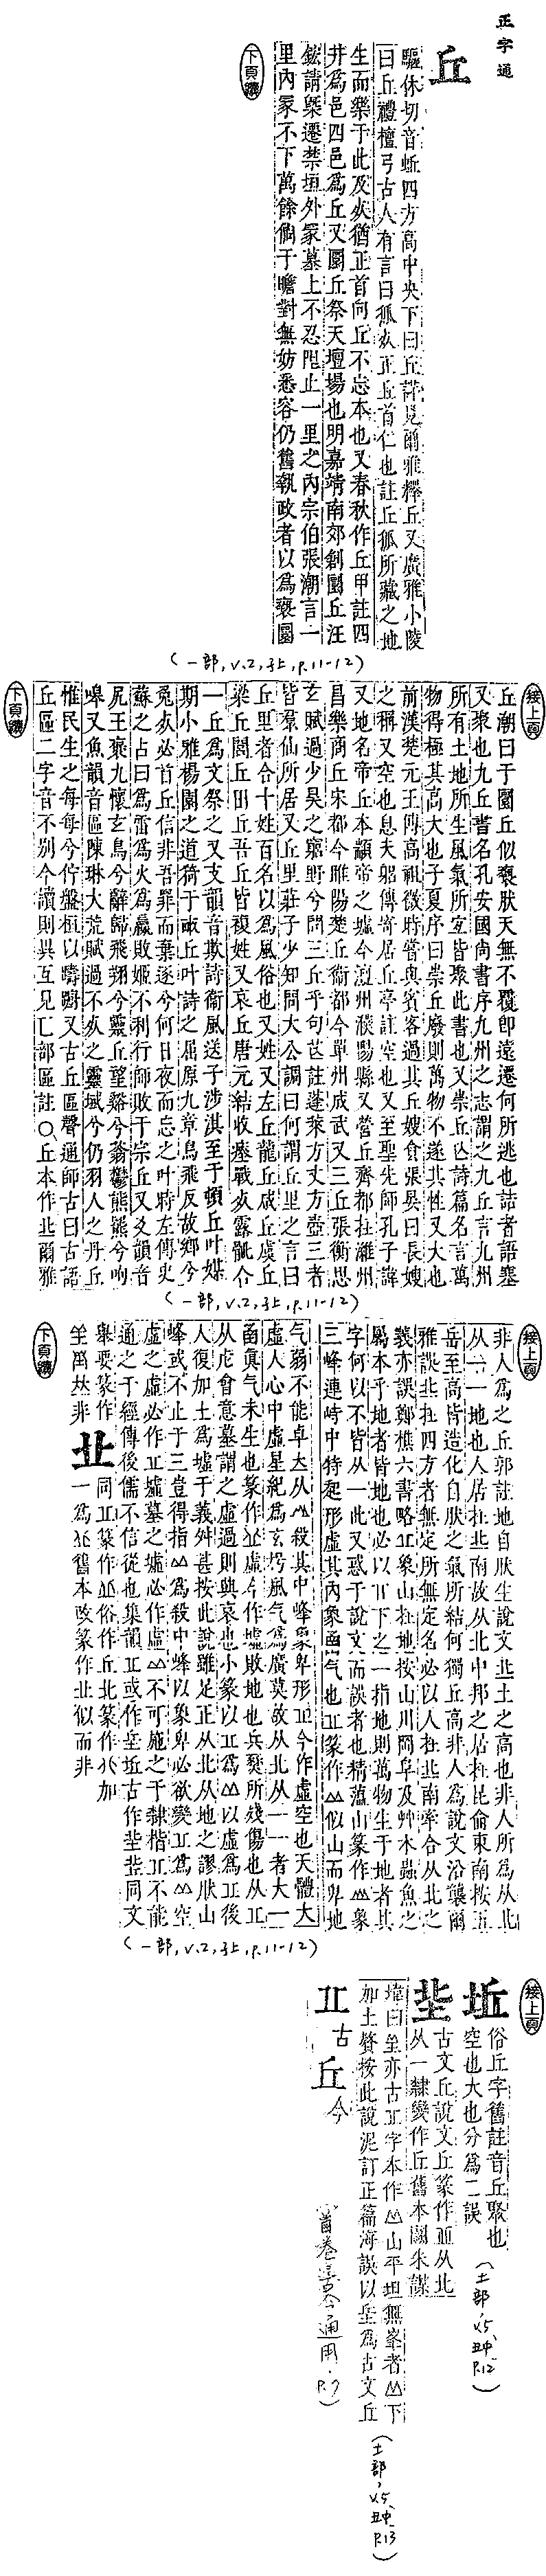 正字通
丘
驅休切音蚯四方高中央下曰丘詳見爾雅釋丘又廣雅小陵
曰丘禮檀弓古人有言曰狐死正丘首仁也註丘狐所藏之地
生而樂于此及死猶正首向丘不忘本也又春秋作丘甲註四
井為邑四邑為丘又圜丘祭天壇場也明嘉靖南郊創圜丘汪
鋐請槩遷禁垣外冢墓上不忍阻止一里之內宗伯張潮言一
里內冢不下萬餘倘于瞻對無妨悉容仍舊執政者以為褻圜
下頁續
(一部,v.2,子上,p.11-12)
接上頁
丘潮曰于圜丘似褻肰天無不覆卽遠遷何所逃也詰者語塞
又聚也九丘書名孔安國尚書序九州之志謂之九丘言九州
所有土地所生風氣所宜皆聚此書也又崇丘亾詩篇名言萬
物得極其高大也子夏序曰崇丘廢則萬物不遂其性又大也
前漢楚元王傳高祖微時嘗與賓客過其丘嫂食張晏曰長嫂
之稱又空也息夫躬傳寄居丘亭註空也又至聖先師孔子諱
又地名帝丘本顓帝之墟今澶州濮陽縣又營丘齊都在濰州
昌樂商丘宋都今睢陽楚丘衞都今單州成武又三丘張衡思
玄賦過少昊之窮野兮問三丘乎句芒註蓬萊方丈方壺三者
皆羣仙所居又丘里莊子少知問大公調曰何謂丘里之言曰
丘里者合十姓百名以為風俗也又姓又左丘龍丘咸丘虞丘
梁丘閭丘田丘吾丘皆複姓又哀丘唐元結收瘞戰死露骴合
一丘為文祭之又支韻音欺詩衞風送子涉淇至于頓丘叶媒
期小雅楊園之道猗于畝丘叶詩之屈原九章鳥飛反故鄉兮
兔死必首丘信非吾罪而棄逐兮何日夜而忘之叶時左傳史
蘇之占曰為雷為火為嬴敗姬不利行師敗于宗丘又爻韻音
尻王襃九懷玄鳥兮辭歸飛翔兮靈丘望谿兮蓊鬱熊羆兮呴
嘷又魚韻音區陳琳大荒賦過不死之靈域兮仍羽人之丹丘
惟民生之每每兮佇盤桓以躊躇又古丘區聲通師古曰古語
丘區二字音不別今讀則異互見匚部區註○丘本作北爾雅
下頁續
(一部,v.2,子上,p.11-12)
接上頁
非人為之丘郭註地自肰生說文北土之高也非人所為从北
从一一地也人居在北南故从北中邦之居在昆侖東南按五
岳至高皆造化自肰之氣所結何獨丘高非人為說文沿襲爾
雅誤北在四方者無定所無定名必以人在北南牽合从北之
義亦誤鄭樵六書略丘象山在地按山川岡阜及艸木蟲魚之
屬本乎地者皆地也必以丌下之一指地則萬物生于地者其
字何以不皆从一此又惑于說文而誤者也精薀山篆作山象
三峰連峙中特起形虛其內象函气也丘篆作丘似山而卑地
气弱不能卓立从山殺其中峰象卑形丘今作虛空也天體大
虛人心中虛星紀為玄枵風气為廣莫故从北从一一者大一
函眞气未生也篆作丘虛今作墟敗地也兵燹所殘傷也从丘
从虍會意墓謂之虛過則興哀也小篆以丘為丘以虛為丘後
人復加土為墟于義舛甚按此說雖足正从北从地之謬肰山
峰或不止于三豈得指山為殺中峰以象卑必欲變丘為丘空
虛之虛必作丘墟墓之墟必作虛丘不可施之于隸楷丘不能
通之于經傳後儒不信從也集韻丘或作坴坵古作坴坴同文
舉要篆作丘同丘篆作丘俗作丘北篆作北加
坴萬夶非
一為丘舊本改篆作北似而非
下頁續
(一部,v.2,子上,p.11-12)
接上頁
坵
俗丘字舊註音丘聚也
空也大也分為二誤
(土部,v.5,丑中,P.12)
古文丘說文丘篆作丠从北
从一隸變作丘舊本闕朱謀
㙔曰坴亦古丘字本作山山平坦無峯者山下
加土贅按此說泥訂正篇海誤以坴為古文丘
(土部,v.5,丑中,P.13)
古
丘今
(首卷,古今通用,P.7)